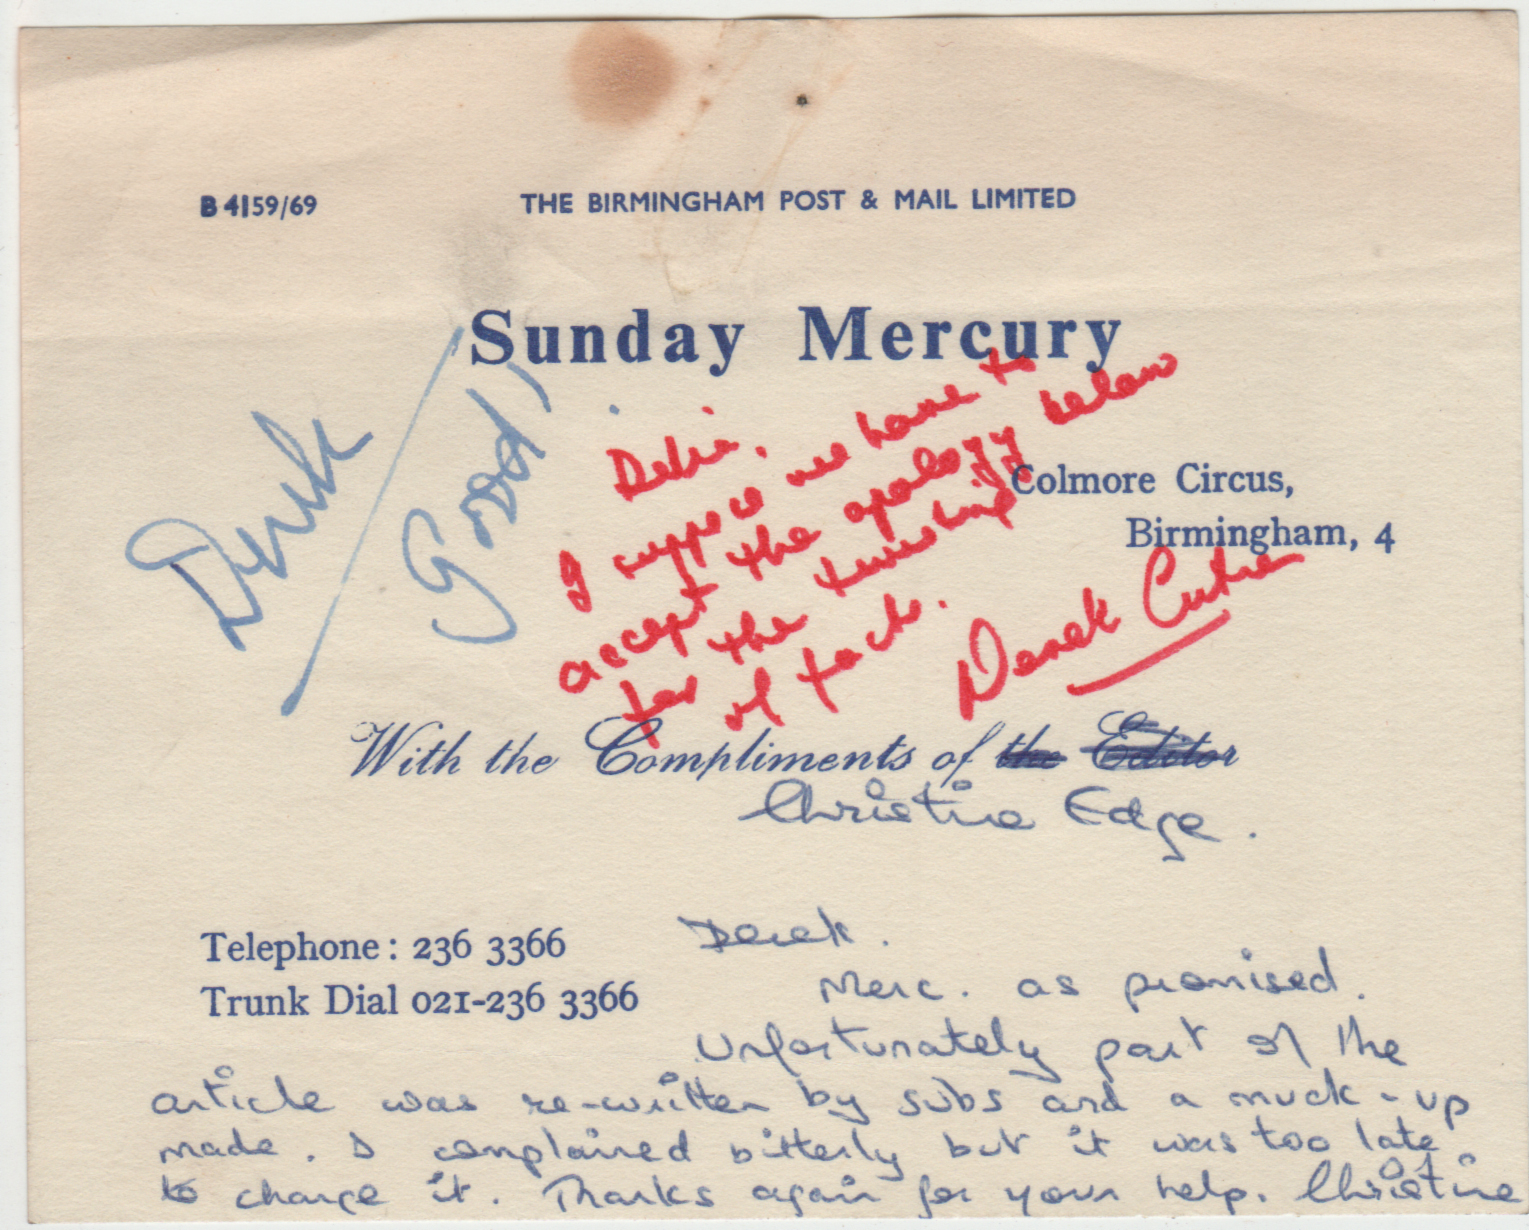 B 4159/69
THE BIRMINGHAM POST & MAIL LIMITED
Sunday Mercury
Derek
Good!
I suppose we have to
accept the apology below
for the twisting
of facts.
Derek
Colmore Circus,
Birmingham, 4
With the Compliments of the Editor
Christine Edge.
Telephone: 236 3366
Trunk Dial 021-236 3366
Derek.
Merc. as promised.
Unfortunately part of the
article was re-written by subs and a muck-up
made. I complained bitterly but it was too late
to change it. Thanks again for your help. Christine